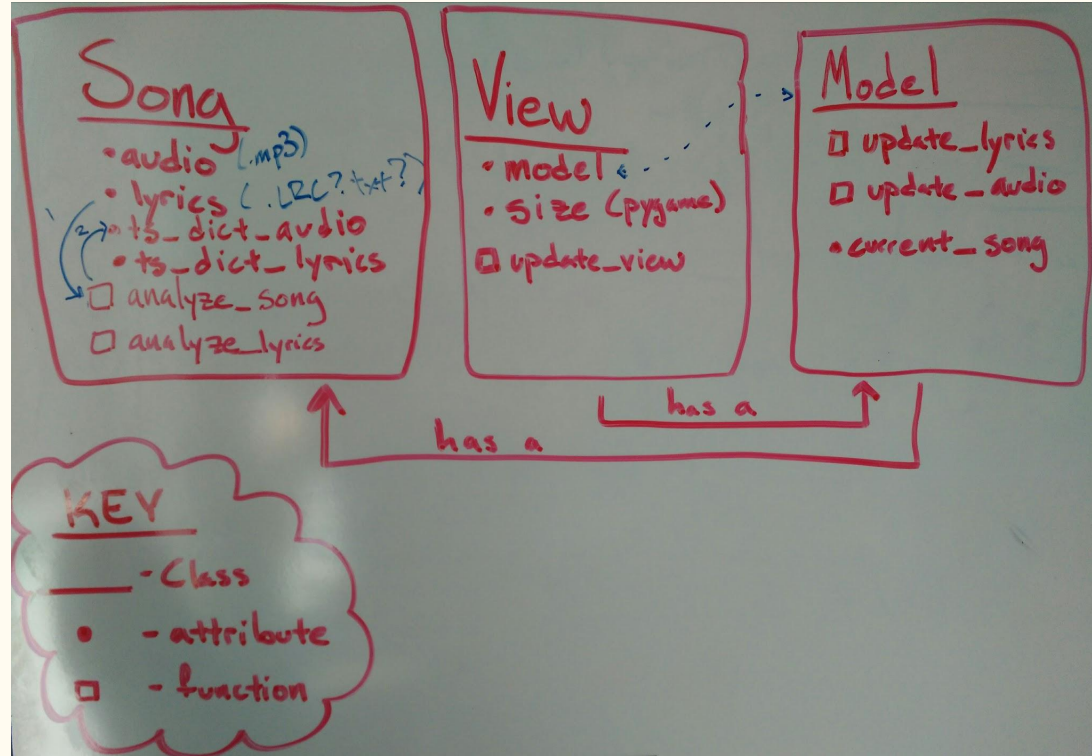 Song
• audio (.mp3)
• lyrics (.LRC? .txt?)
• ts_dict_audio
• ts_dict_lyrics
□ analyze_song
□ analyze_lyrics
1
2
View
• model
• size (pygame)
□ update_view
Model
□ update_lyrics
□ update_audio
• current_song
has a
has a
KEY
- Class
• - attribute
□ - function